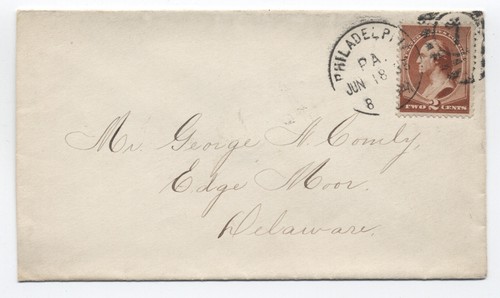 PHILADELPHIA
PA.
JUN 18
8
TWO 2 CENTS
Mr. George N. Comly,
Edge Moor.
Delaware.